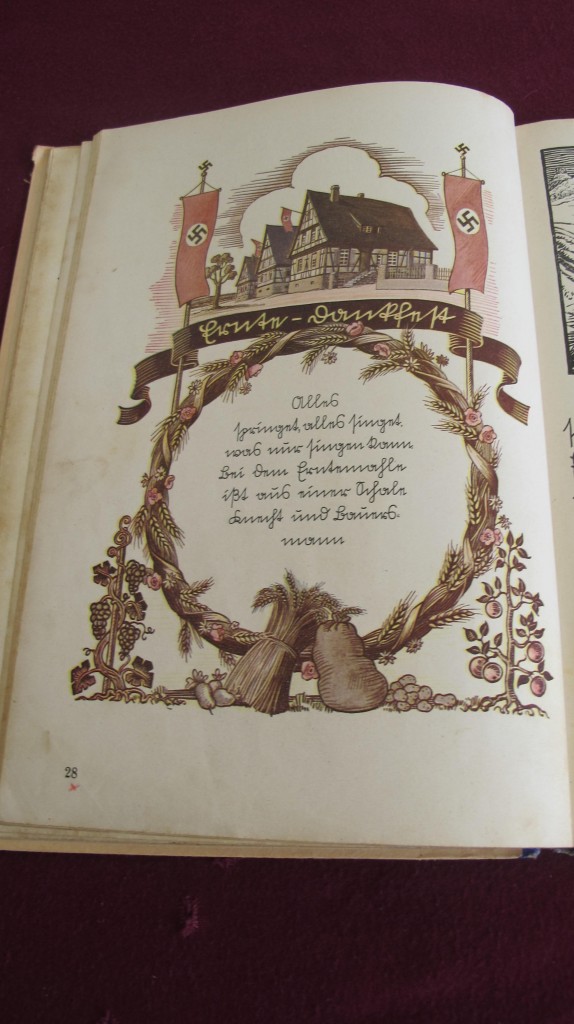 Ernte-Dankfest
Alles
springet, alles singet,
was nur singen kann.
Bei dem Erntemahle
ißt aus einer Schale
Knecht und Bauers-
mann
28